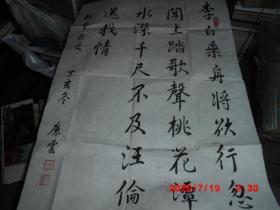 李白乘舟將欲行忽
聞岸上踏歌聲桃花潭
水深千尺不及汪倫
送我情
丁亥冬 廉雲